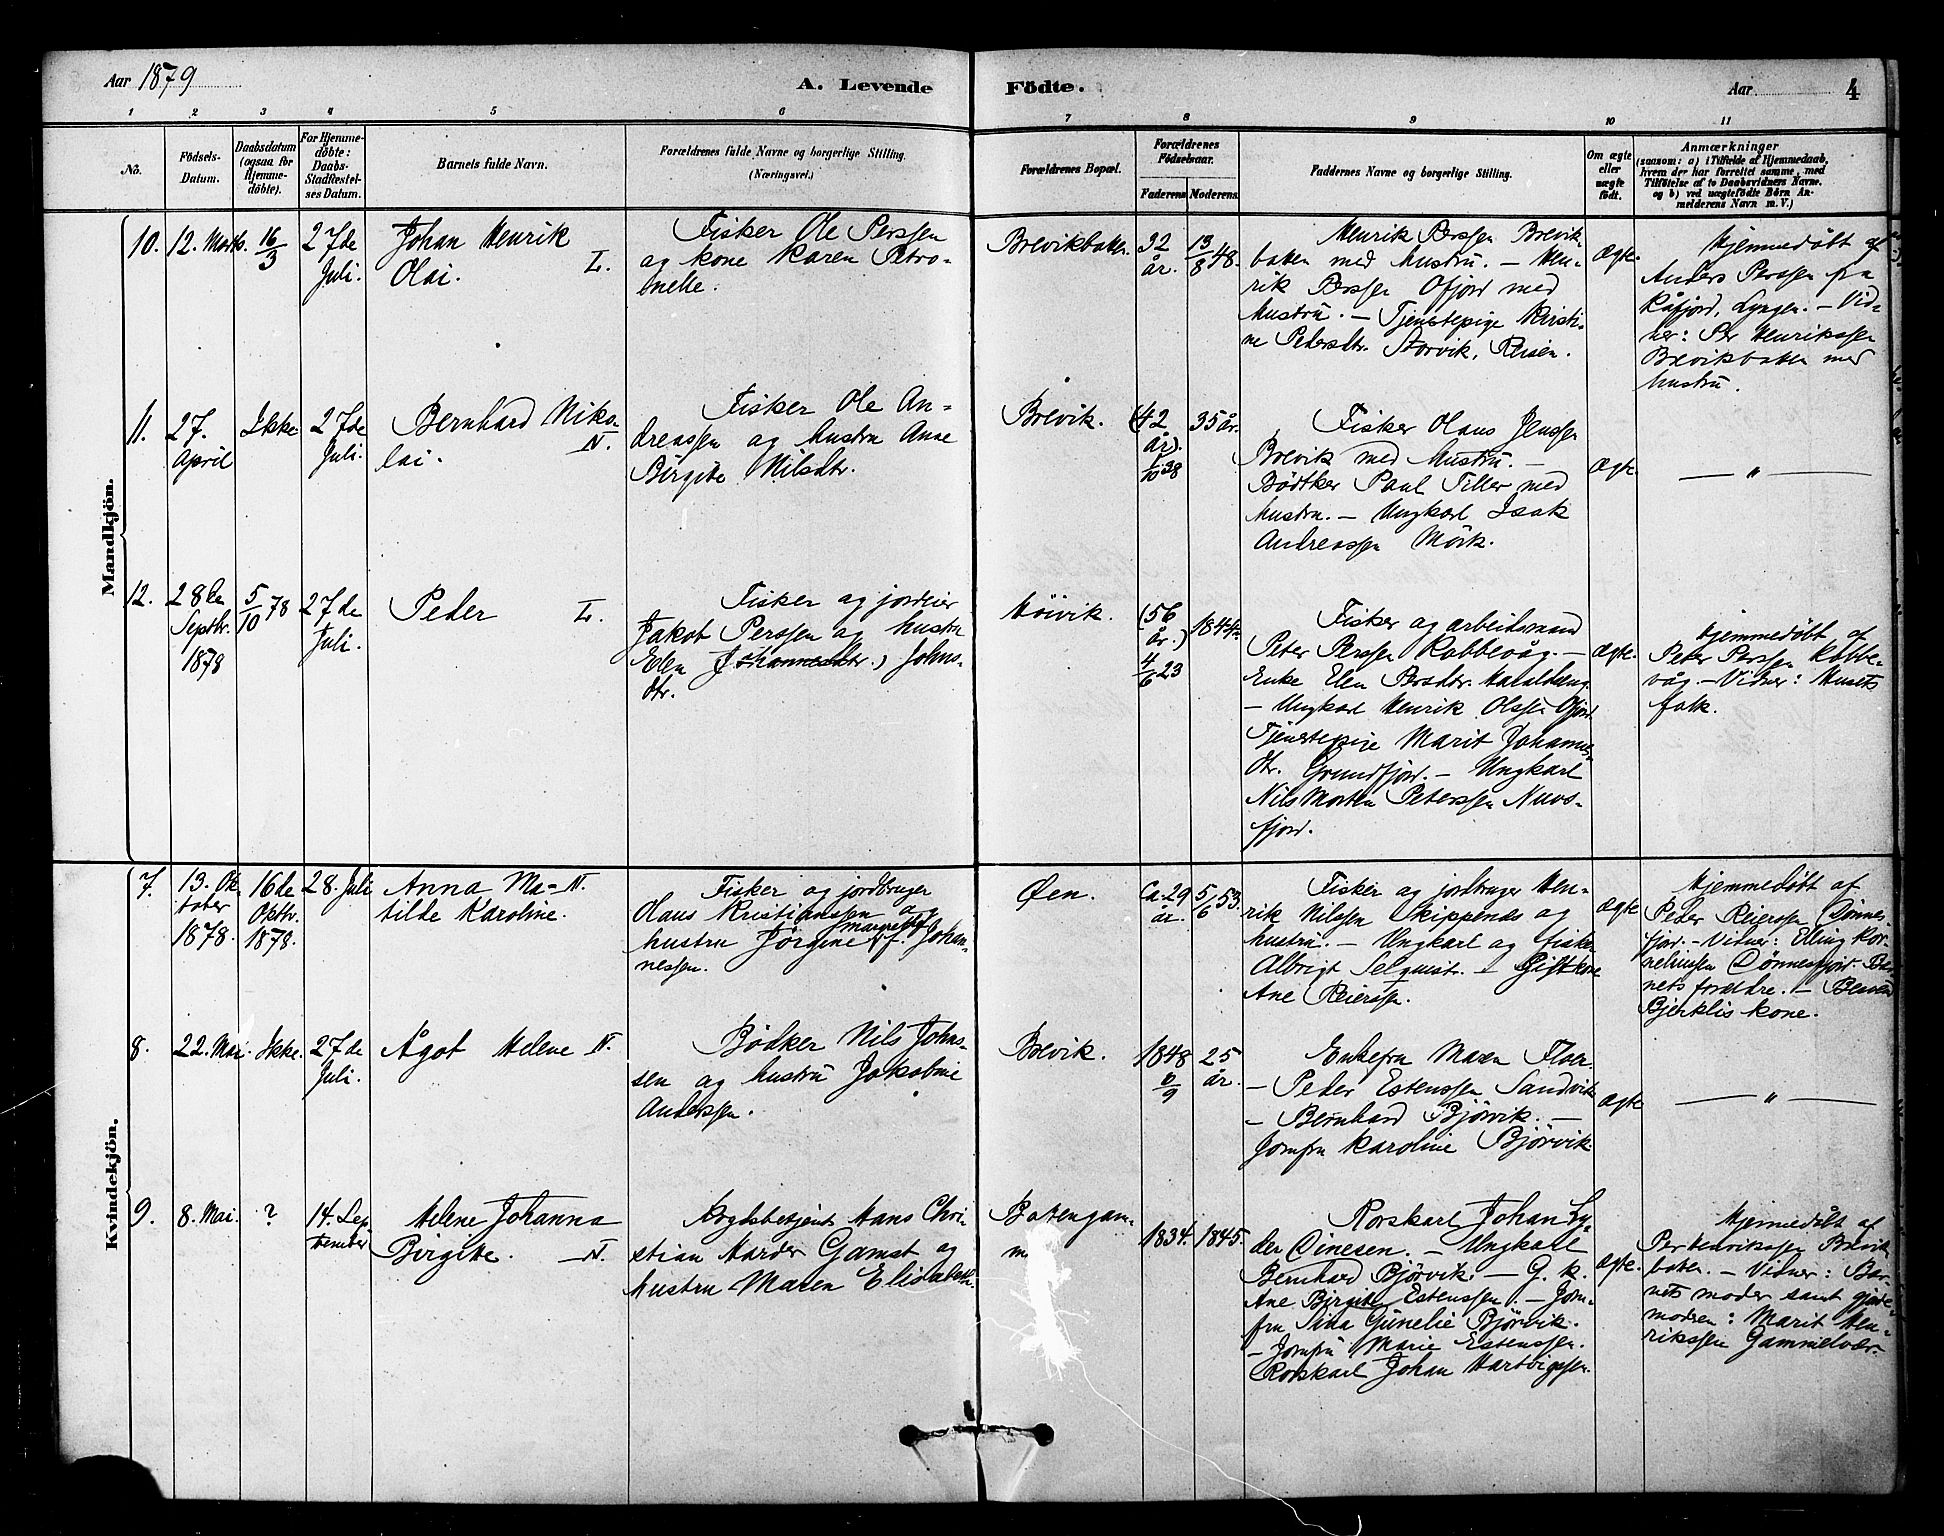 Aar 1879
A. Levende
Födte.
Aar
4
1 2 3 4 5 6 7 8 9 10 11
No.
Födsels-
Datum.
Daabsdatum
(ogsaa for
Hjemme-
döbte).
For Hjemme-
döbte:
Daabs-
Stadfæstel-
ses Datum.
Barnets fulde Navn.
Forældrenes fulde Navne og borgerlige Stilling.
(Næringsvei.)
Forældrenes Bopæl.
Forældrenes
Födselsaar.
Faderens Moderens.
Faddernes Navne og borgerlige Stilling.
Om ægte
eller
uægte
födt.
Anmærkninger
(saasom: a) i Tilfælde af Hjemmedaab,
hvem der har forrettet samme, med
Tilföielse af to Daabsvidners Navne,
og b) ved uægtefödte Börn An-
melderens Navn m. V.)
Mandkjön.
10.
12. Marts.
16/3
27de
Juli.
Johan Henrik
Olai. L.
Fisker Ole Perssen
og kone Karen Petro-
nelle.
Brevikbakken
32
år.
13/8 48.
Henrik Perssen Brevik-
bakken med hustru. – Hen-
rik Perssen Ofjord med
hustru. – Tjenestepige Kirsti-
ne Pedersdtr. Storvik, Reisen.
Ægte.
Hjemmedøbt af
Anders Perssen fra
Kåfjord, Lyngen. – Vid-
ner: Per Henrikssen
Brevikbakken med
hustru.
11.
27.
April
Ikke
27de
Juli.
Bernhard Niko-
lai. N.
Fisker Ole An-
dreassen og hustru Anne
Birgite Nilsdtr.
Brevik.
(42
år).
1/10 38
35 år.
Fisker Olaus Jenssen
Brevik med hustru. –
Bødtker Paul Tiller med
hustru. – Ungkarl Isak
Andreassen Mörk.
Ægte.
— " —
12.
28de
Septbr.
1878
5/10 78
27de
Juli.
Peder L.
Fisker og jordeier
Jakob Perssen og hustru
Elen Johannesdtr.) Johns-
dtr.
Höivik.
(56
år.)
4/6 23
1844.
Fisker og arbeidsmand
Peter Perssen Kobbevåg. –
Enke Elen Persdtr. Haraldseng
– Ungkarl Henrik Olssen Ofjord
Tjenestepige Marit Johannes-
dtr. Grundfjord. – Ungkarl
Nils Morten Peterssen Nuvs-
fjord.
Ægte.
Hjemmedøbt af
Peter Perssen Kobbe-
våg. – Vidner: Husets
folk.
Kvindekjön.
7.
13. Ok-
tober
1878.
16de
Oktbr.
1878.
28. Juli
Anna Ma- N.
tilde Karoline.
Fisker og jordbruger
Olaus Kristianssen og
hustru Jörgine Margrethe f. Johan-
nessen.
Øen.
Ca. 29
år.
5/6 53.
Fisker og jordbruger Hen-
rik Nilssen Skippenæs og
hustru. – Ungkarl og fisker
Albrigt Selquist. – Gift kone
Ane Reierssen.
Ægte
Hjemmedøbt af
Peder Reierssen Dønnes-
fjord. – Vidner: Elling Kor-
neliussen Dønnesfjord. Bar-
nets forældre. –
Bjerklis kone.
8.
22. Mai.
Ikke.
27de
Juli.
Ågot Helene N.
Bödker Nils Johns-
sen og hustru Jakobine
Anderssen.
Brevik.
1848
6/9
25
år.
Enkefru Maren Floer.
– Peder Estenssen Sandvik
– Bernhard Bjørvik. –
Jomfru Karoline Bjørvik
Ægte
— " —
9.
8. Mai.
?
14. Sep-
tember
Helene Johanna
Birgitte. – N.
Hans Chri-
stian Harder Gamst og
hustru Maren Elisabeth.
Bakengam-
men
1834.
1845.
Rorskarl Johan Ly-
der Dinesen. – Ungkarl
Bernhard Bjørvik. – G. k.
Ane Birgitte Estenssen. – Jom-
fru Sina Gunelie Bjørvik.
– Jomfru Marie Estenssen.
Rorskarl Johan Hartvigssen.
Ægte.
Hjemmedøbt af
Per Henrikssen Brevik-
bakken. – Vidner: Bar-
nets moder samt gjorde-
moderen: Marit Hen-
rikssen Gammelvær.